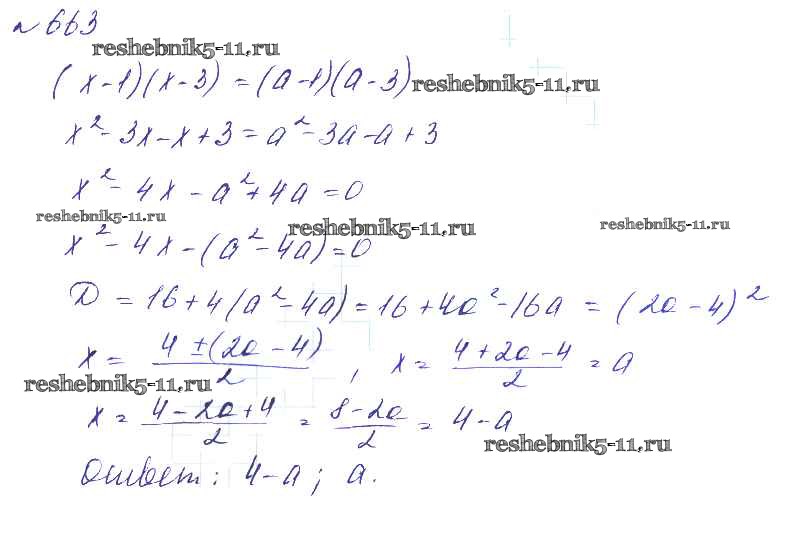 № 663
reshebnik5-11.ru
(x-1)(x-3) = (a-1)(a-3) reshebnik5-11.ru
x² - 3x - x + 3 = a² - 3a - a + 3
x² - 4x - a² + 4a = 0
reshebnik5-11.ru reshebnik5-11.ru reshebnik5-11.ru
x² - 4x - (a² - 4a) = 0
D = 16 + 4(a² - 4a) = 16 + 4a² - 16a = (2a - 4)²
x = (4 ± (2a - 4))/2, x = (4 + 2a - 4)/2 = a
reshebnik5-11.ru
x = (4 - 2a + 4)/2 = (8 - 2a)/2 = 4 - a
reshebnik5-11.ru
Ответ: 4 - a; a.